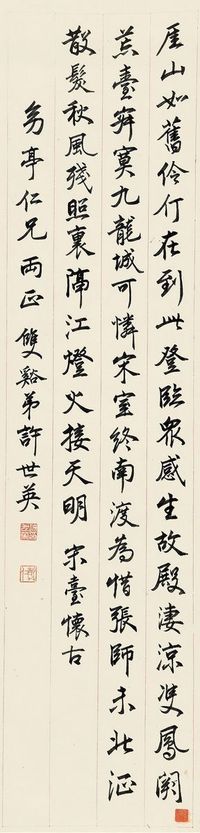 厓山如舊伶仃在到此登臨眾感生故殿淒涼雙鳳闕
荒臺寂寞九龍城可憐宋室終南渡為惜張師未北征
散髮秋風殘照裏隔江燈火接天明 宋臺懷古
亭仁兄兩正 雙谿弟許世英